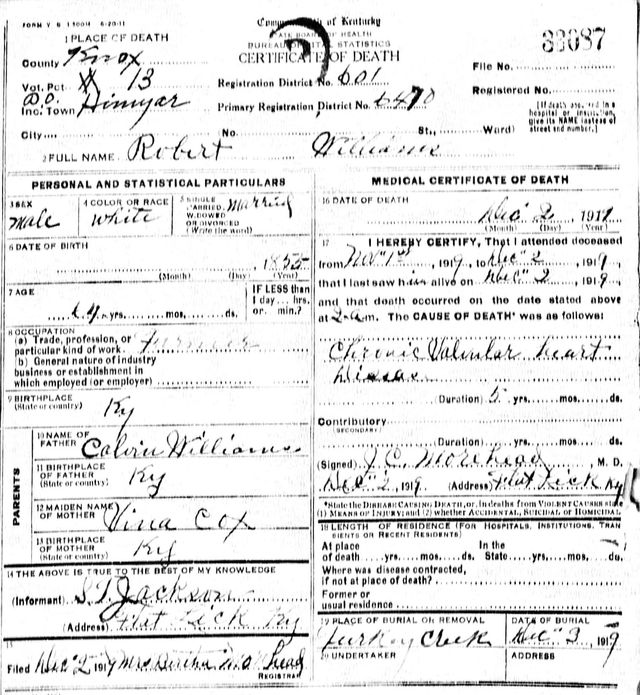 FORM V S 1 500M 6-20-11
Commonwealth of Kentucky
STATE BOARD OF HEALTH
BUREAU OF VITAL STATISTICS
CERTIFICATE OF DEATH
33087
1 PLACE OF DEATH
County Knox
Vot. Pct. 13
P.O.
Inc. Town Himyar
City
Registration District No. 601
Primary Registration District No. 6470
No. St., Ward)
File No.
Registered No.
[If death occurred in a hospital or institution, give its NAME instead of street and number.]
2 FULL NAME Robert Williams
PERSONAL AND STATISTICAL PARTICULARS
3 SEX male
4 COLOR OR RACE white
5 SINGLE MARRIED, WIDOWED OR DIVORCED (Write the word) Married
6 DATE OF BIRTH
1855
(Month) (Day) (Year)
7 AGE
64 yrs. mos. ds.
IF LESS than 1 day... hrs. or. min.?
8 OCCUPATION
(a) Trade, profession, or particular kind of work. Farmer
(b) General nature of industry business or establishment in which employed (or employer)
9 BIRTHPLACE (State or country) Ky
PARENTS
10 NAME OF FATHER Calvin Williams
11 BIRTHPLACE OF FATHER (State or country) Ky
12 MAIDEN NAME OF MOTHER Vina Cox
13 BIRTHPLACE OF MOTHER (State or country) Ky
14 THE ABOVE IS TRUE TO THE BEST OF MY KNOWLEDGE
(Informant) S.T. Jackson
(Address) Flat Lick Ky
15
Filed Dec 2 1919 Mrs
REGISTRAR
MEDICAL CERTIFICATE OF DEATH
16 DATE OF DEATH
Dec 2, 1919
(Month) (Day) (Year)
17 I HEREBY CERTIFY, That I attended deceased
from Nov 1st, 1919, to Dec 2, 1919
that I last saw him alive on Dec 2, 1919,
and that death occurred on the date stated above
at 2-a.m. The CAUSE OF DEATH* was as follows:
Chronic Valvular heart
Disease
(Duration) 5 yrs. mos. ds.
Contributory
(SECONDARY)
(Duration) yrs. mos. ds.
(Signed) J. C. Morehead, M. D.
Dec 2, 1919 (Address) Flat Lick Ky
*State the DISEASE CAUSING DEATH, or, in deaths from VIOLENT CAUSES state
(1) MEANS OF INJURY; and (2) whether ACCIDENTAL, SUICIDAL or HOMICIDAL
18 LENGTH OF RESIDENCE (FOR HOSPITALS, INSTITUTIONS, TRANSIENTS OR RECENT RESIDENTS)
At place of death yrs. mos. ds. In the State yrs. mos. ds.
Where was disease contracted, if not at place of death?
Former or usual residence
19 PLACE OF BURIAL OR REMOVAL
Turkey Creek
DATE OF BURIAL
Dec 3, 1919
20 UNDERTAKER
ADDRESS